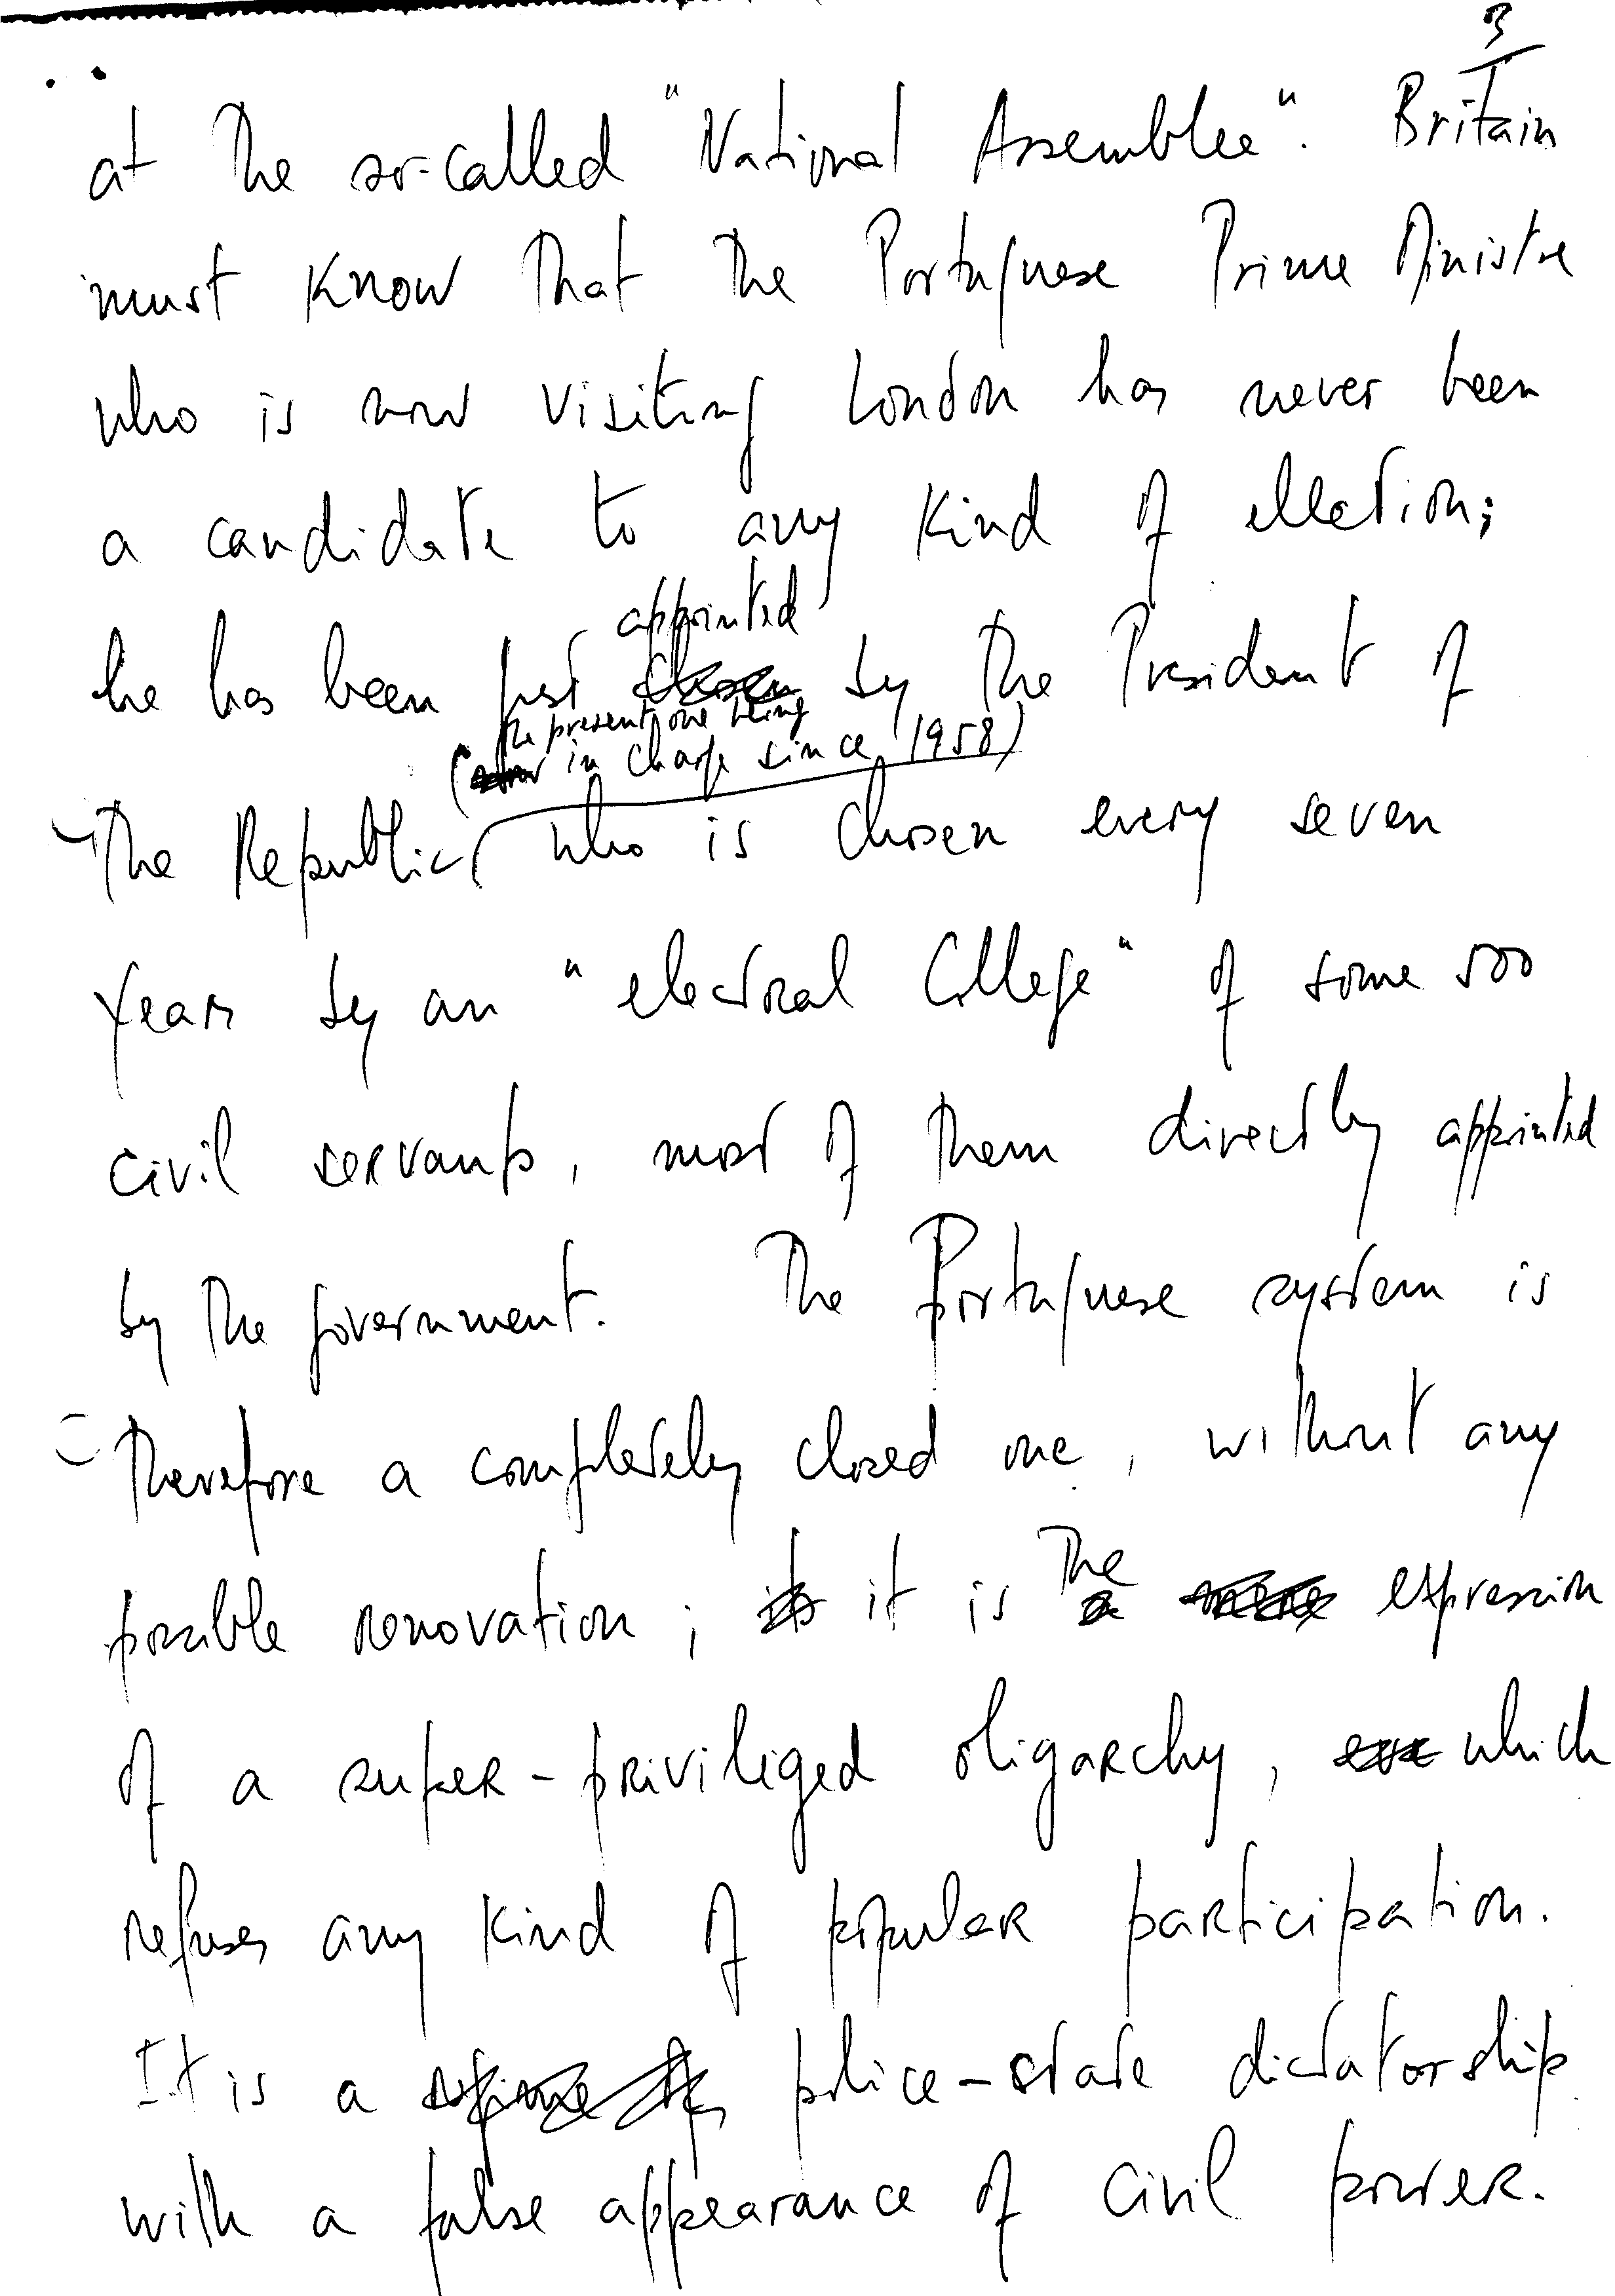 3
at the so-called "National Assemblee". Britain
must know that the Portuguese Prime Ministre
who is now visiting London has never been
a candidate to any kind of ellection;
appointed
he has been just chosen by the President of
the present one being
(in charge since 1958)
the Republic, who is chosen every seven
years by an "electoral College" of some 500
civil servants, most of them directly appointed
by the government. The Portuguese system is
therefore a completely closed one, without any
The
possible renovation; it is a mere expression
of a super-priviliged oligarchy, which
refuses any kind of popular participation.
It is a regime of police-state dictatorship
with a false appearance of civil power.